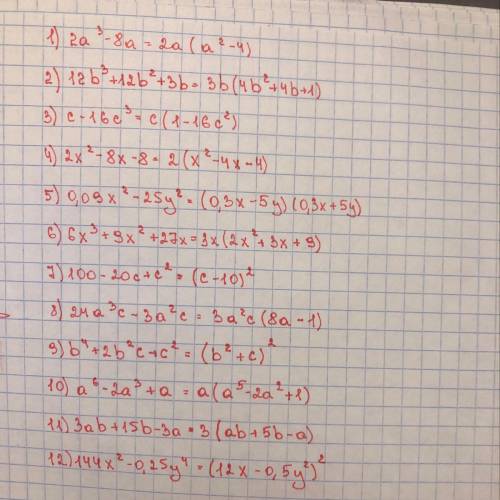 1) 2a³-8a = 2a(a²-4)
2) 12b³+12b²+3b = 3b(4b²+4b+1)
3) c-16c³ = c(1-16c²)
4) 2x²-8x-8 = 2(x²-4x-4)
5) 0,09x²-25y² = (0,3x-5y)(0,3x+5y)
6) 6x³+9x²+27x = 3x(2x²+3x+9)
7) 100-20c+c² = (c-10)²
8) 24a³c-3a²c = 3a²c(8a-1)
9) b⁴+2b²c+c² = (b²+c)²
10) a⁶-2a³+a = a(a⁵-2a²+1)
11) 3ab+15b-3a = 3(ab+5b-a)
12) 144x²-0,25y⁴ = (12x-0,5y²)²